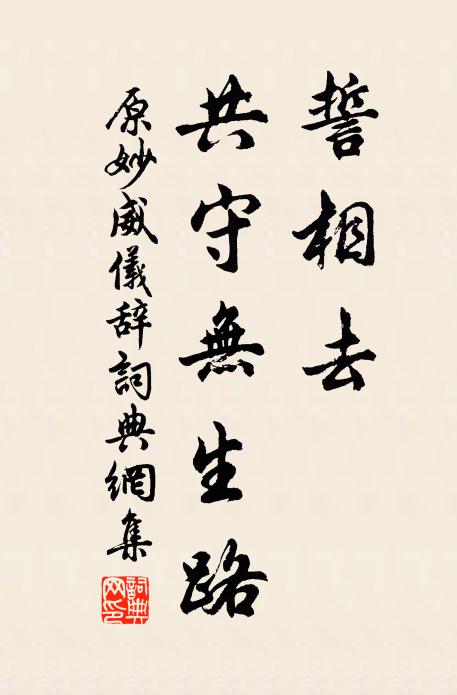 誓相去
共守無生路
原妙威儀辞詞典網集
詞典
网印